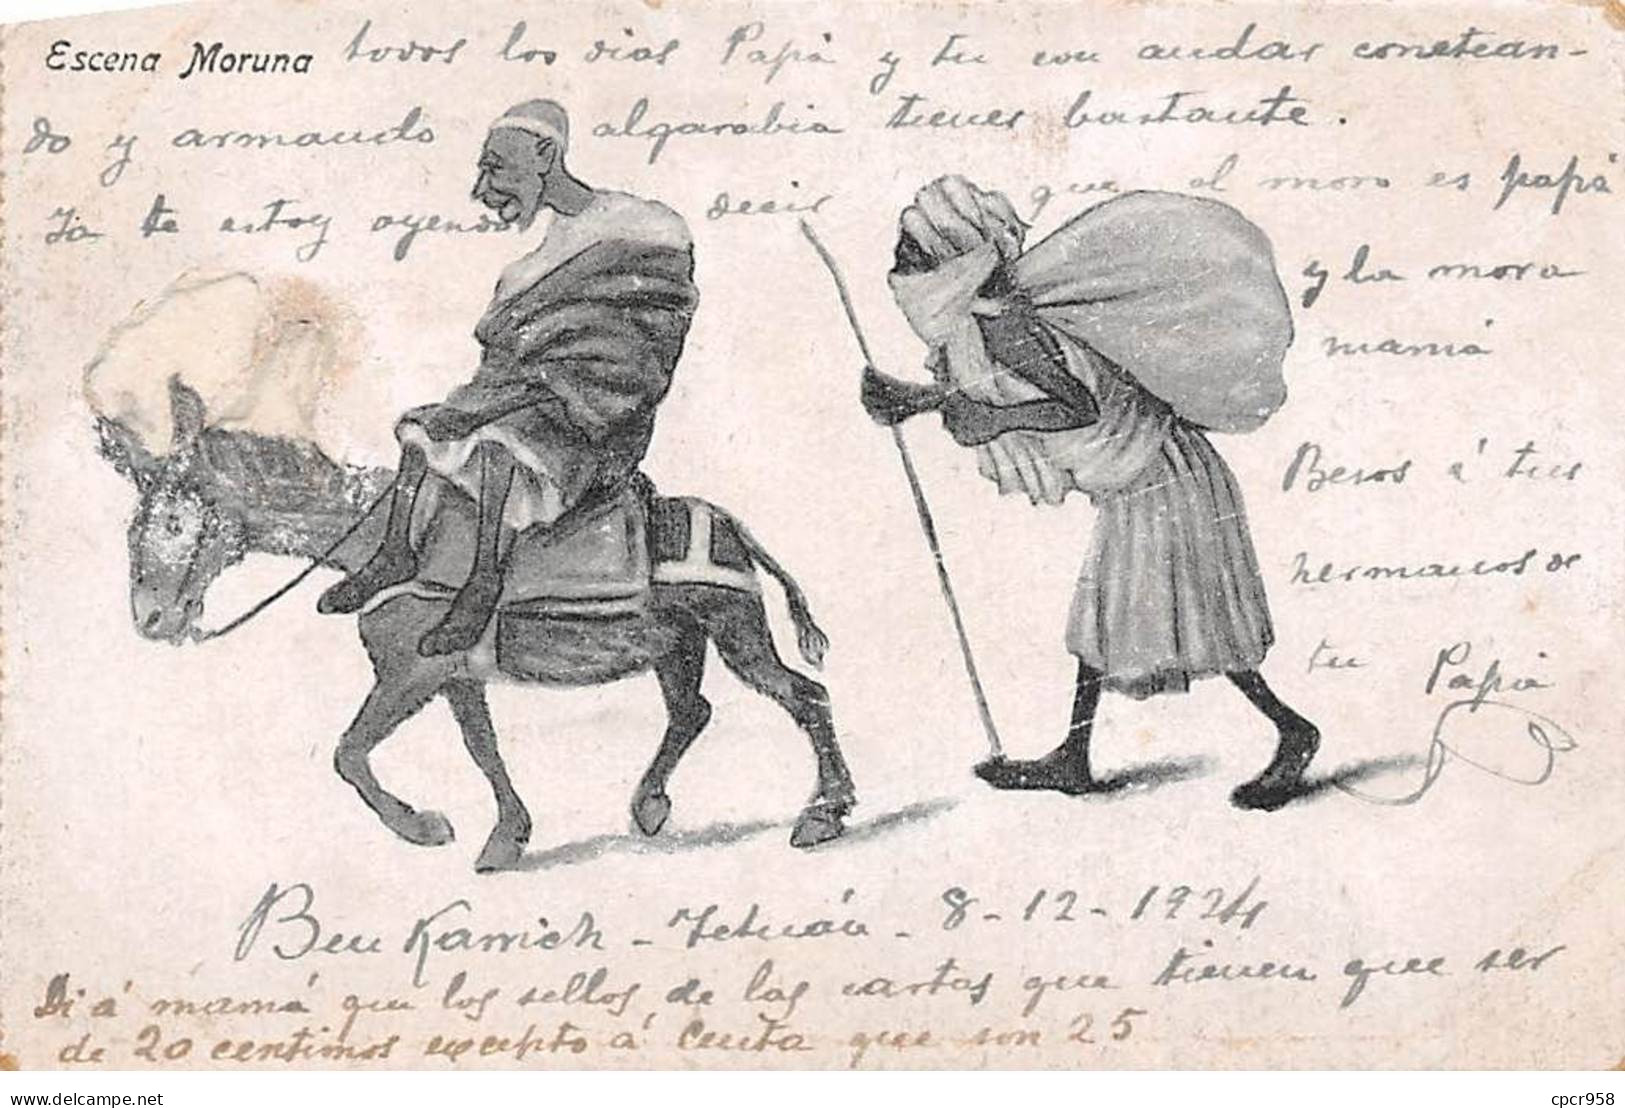 Escena Moruna todos los dias Papá y tu con andar conetean-
do y armando algarabia tienes bastante.
Ya te estoy oyendo decir que el moro es papá
y la mora
mamá
Besos á tus
hermanos de
tu Papá
Ben Karrich - Tetuán - 8-12-1924
Di á mamá que los sellos de las cartas que tienen que ser
de 20 centimos excepto á Ceuta que son 25
delcampe.net
cpcr958